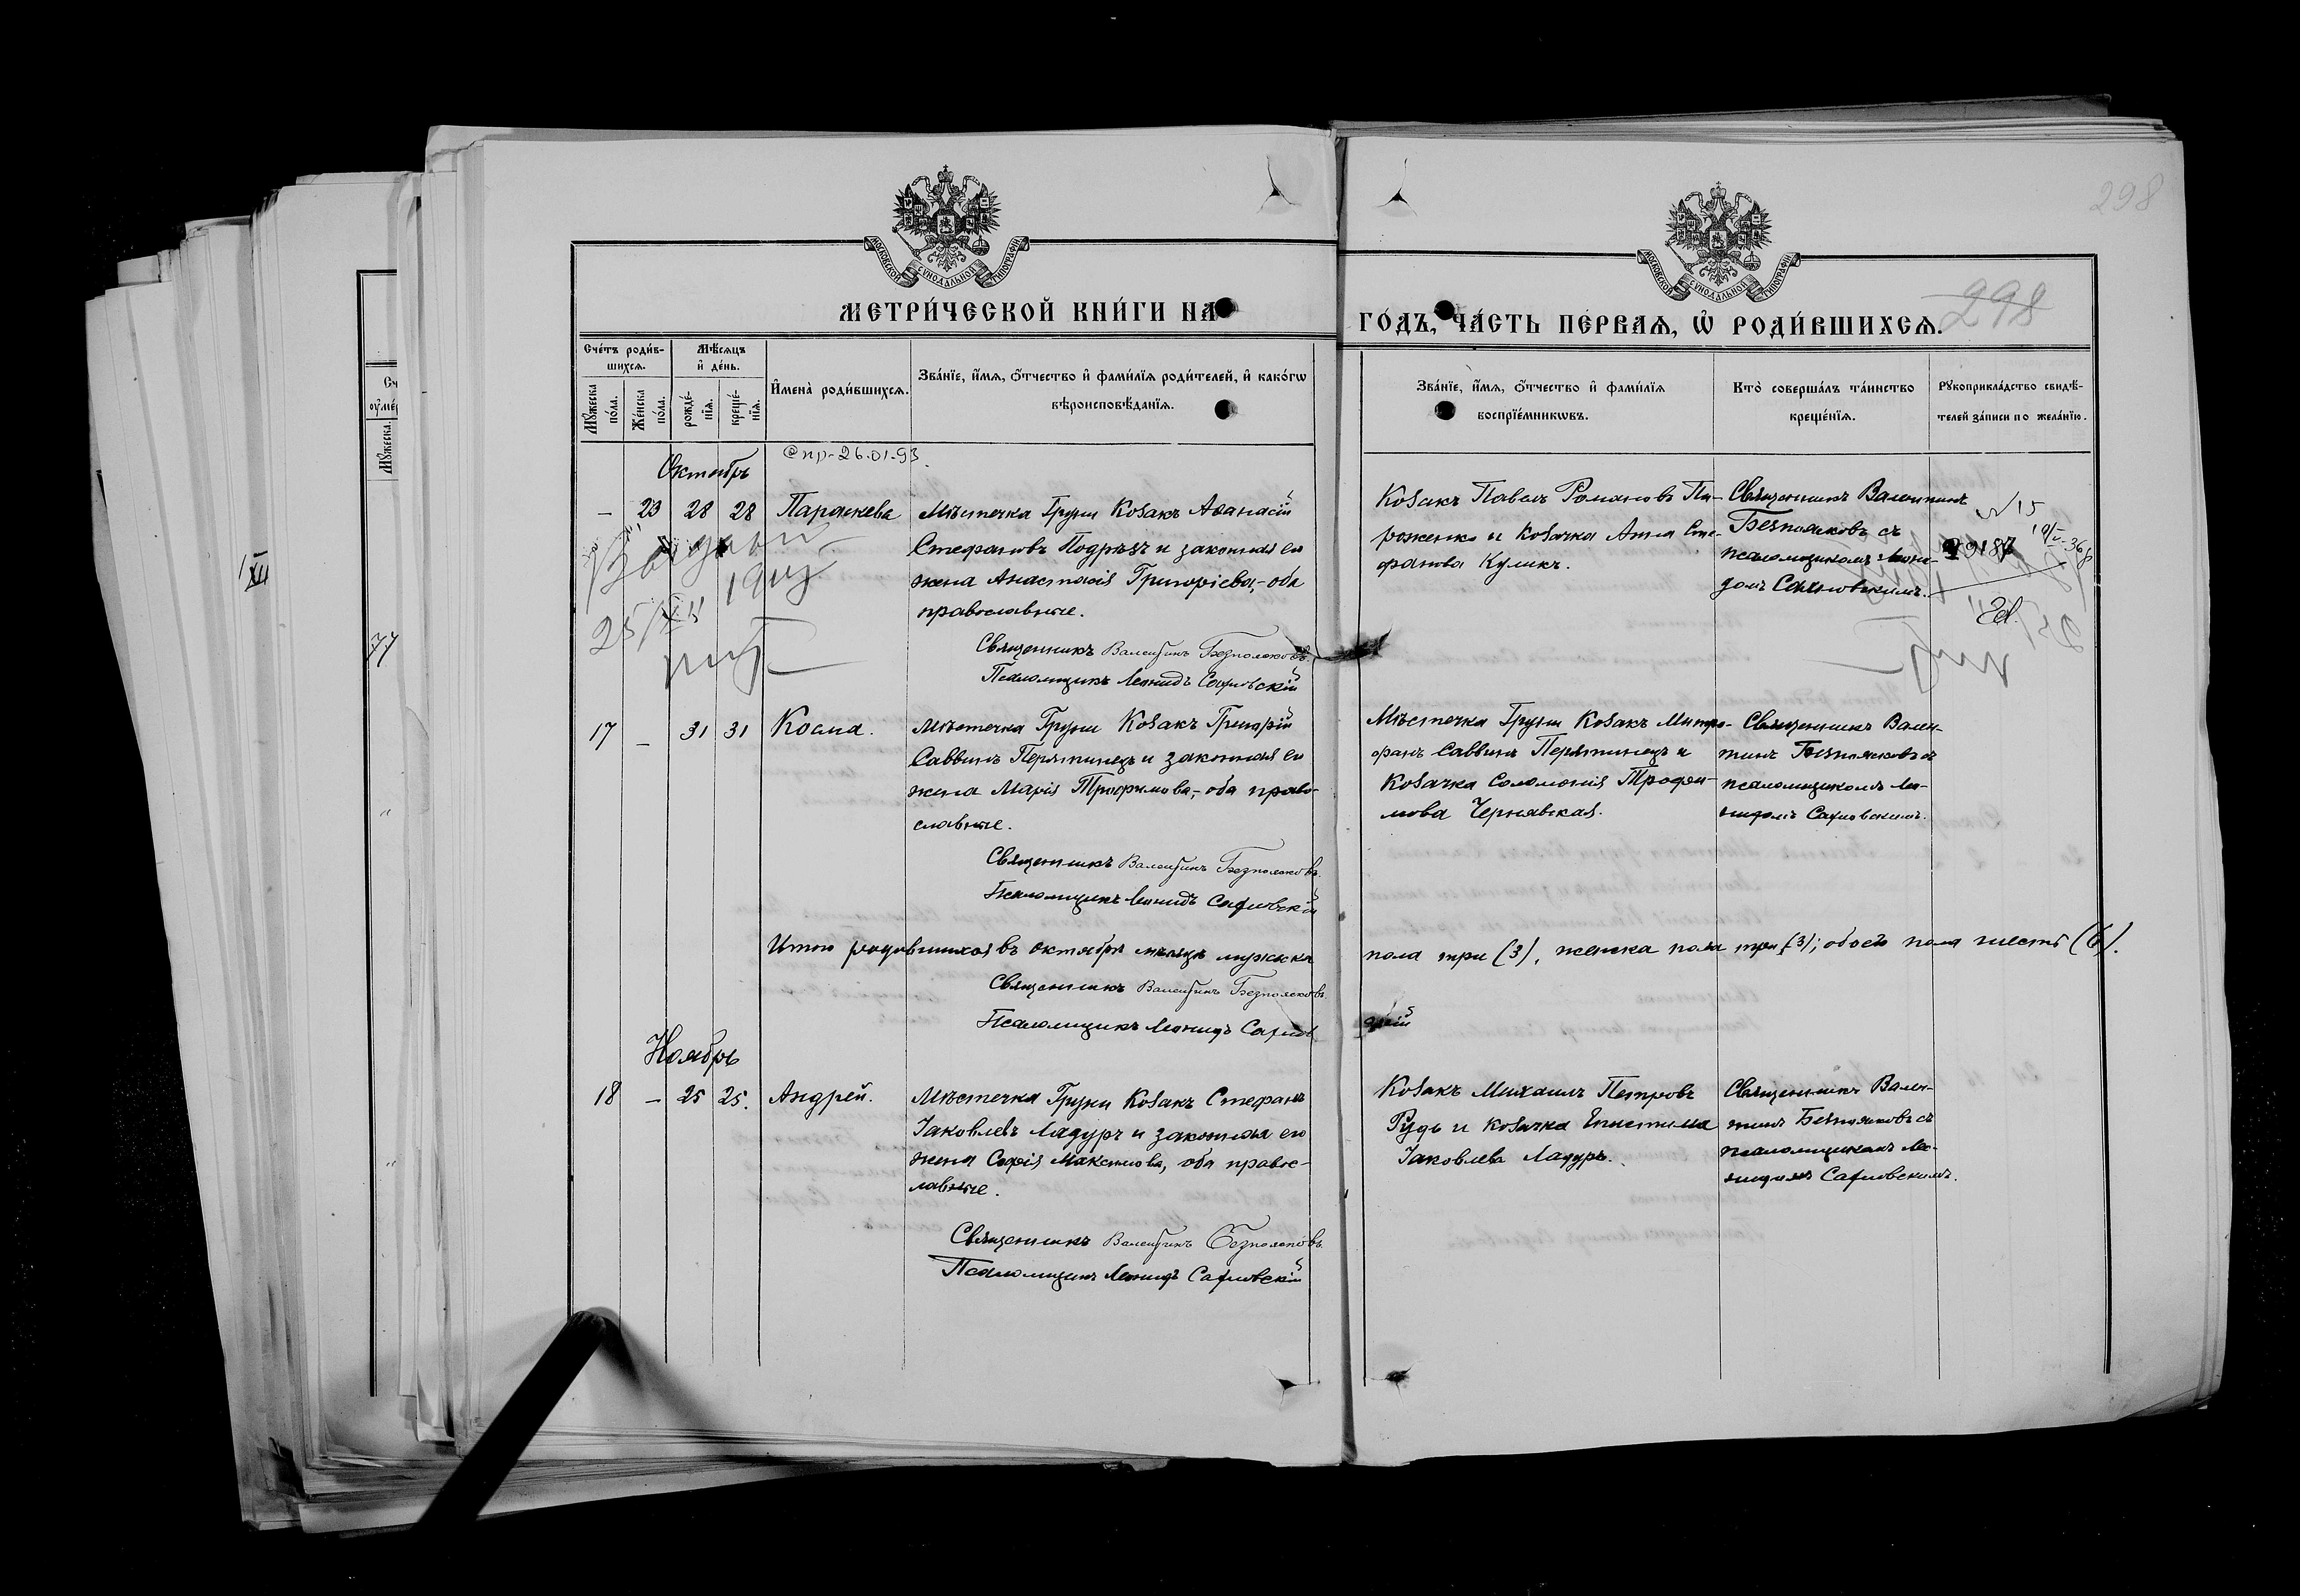 298
МОСКОВСКОЙ СУНОДАЛЬНОЙ ТИПОГРАФІИ
МОСКОВСКОЙ СУНОДАЛЬНОЙ ТИПОГРАФІИ
МЕТРИ́ЧЕСКОЙ КНИ́ГИ НА
ГО́ДЪ, ЧА́СТЬ ПЕ́РВАѦ, Ѡ҆ РОДИ́ВШИХСѦ.
298
Сче́тъ роди́в-
шихсѧ.
Мѣ́сѧцъ
и҆ де́нь.
Мꙋ́жеска по́ла.
Же́нска по́ла.
рожде́-
нїѧ.
креще́-
нїѧ.
И҆мена̀ роди́вшихсѧ.
Зва́нїе, и҆́мѧ, ѻ҆́тчество и҆ фами́лїѧ роди́телей, и҆ како́гѡ
вѣроисповѣ́данїѧ.
Зва́нїе, и҆́мѧ, ѻ҆́тчество и҆ фами́лїѧ
воспрїе́мникѡвъ.
Кто̀ соверша́лъ та́инство
креще́нїѧ.
Рꙋкоприкла́дство свидѣ́-
телей за́писи по жела́нїю.
пр-26.01.93
Октябрь
— 23 28 28 Параскева
Мѣстечка Груни Козакъ Аѳанасій
Стефановъ Подрѣзъ и законная его
жена Анастасія Григорієва,- оба
православные.
Священникъ Валентинъ Безполековъ
Псаломщикъ Леонидъ Сахновскій
Козакъ Павелъ Романовъ Па-
роженко и Козачка Анна Сте-
фанова Куликъ.
Священникъ Валентинъ
Безполековъ съ
псаломщикомъ Леони-
домъ Сахновскимъ.
№15
25/XII
17 — 31 31 Косма.
Мѣстечка Груни Козакъ Григорій
Саввинъ Перятинецъ и законная его
жена Марія Трофимова,- оба право-
славные.
Священникъ Валентинъ Безполековъ.
Псаломщикъ Леонидъ Сахновскій
Мѣстечка Груни Козакъ Митро-
фанъ Саввинъ Перятинецъ и
Козачка Соломонія Трофи-
мова Чернявская.
Священникъ Вален-
тинъ Безполековъ съ
псаломщикомъ Ле-
нидомъ Сахновскимъ.
Итого родившихся въ октябрѣ мѣсяцѣ мужска пола три (3), женска пола три (3); обоего пола шесть (6).
Священникъ Валентинъ Безполековъ
Псаломщикъ Леонидъ Сахновскій
Ноябрь
18 — 25 25. Андрей.
Мѣстечка Груни Козакъ Стефанъ
Іаковлевъ Ладуръ и законная его
жена Софія Максимова, оба правос-
лавные.
Священникъ Валентинъ Безполековъ.
Псаломщикъ Леонидъ Сахновскій
Козакъ Михаилъ Петровъ
Рудь и козачка Епистима
Іаковлева Ладуръ.
Священникъ Вален-
тинъ Безполековъ съ
псаломщикомъ Ле-
нидомъ Сахновскимъ.
XII
77